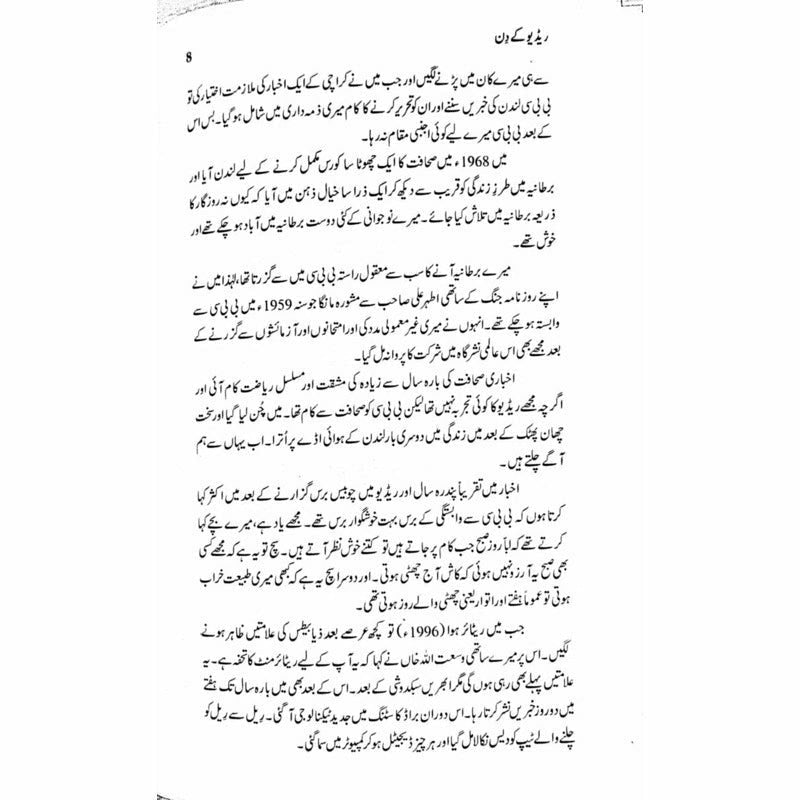 ریڈیو کے دِن
8
سے ہی میرے کان میں پڑنے لگیں اور جب میں نے کراچی کے ایک اخبار کی ملازمت اختیار کی تو
بی بی سی لندن کی خبریں سننے اور ان کو تحریر کرنے کا کام میری ذمہ داری میں شامل ہو گیا۔ بس اس
کے بعد بی بی سی میرے لیے کوئی اجنبی مقام نہ رہا۔
میں 1968ء میں صحافت کا ایک چھوٹا سا کورس مکمل کرنے کے لیے لندن آیا اور
برطانیہ میں طرزِ زندگی کو قریب سے دیکھ کر ایک ذرا سا خیال ذہن میں آیا کہ کیوں نہ روزگار کا
ذریعہ برطانیہ میں تلاش کیا جائے۔ میرے نوجوانی کے کئی دوست برطانیہ میں آباد ہو چکے تھے اور
خوش تھے۔
میرے برطانیہ آنے کا سب سے معقول راستہ بی بی سی میں سے گزرتا تھا، لہٰذا میں نے
اپنے روزنامہ جنگ کے ساتھی اطہر علی صاحب سے مشورہ مانگا جو سنہ 1959ء میں بی بی سی سے
وابستہ ہو چکے تھے۔ انہوں نے میری غیر معمولی مدد کی اور امتحانوں اور آزمائشوں سے گزرنے کے
بعد مجھے بھی اس عالمی نشرگاہ میں شرکت کا پروانہ مل گیا۔
اخباری صحافت کی بارہ سال سے زیادہ کی مشقت اور مسلسل ریاضت کام آئی اور
اگرچہ مجھے ریڈیو کا کوئی تجربہ نہیں تھا لیکن بی بی سی کو صحافت سے کام تھا۔ میں چُن لیا گیا اور سخت
چھان پھٹک کے بعد میں زندگی میں دوسری بار لندن کے ہوائی اڈے پر اُترا۔ اب یہاں سے ہم
آگے چلتے ہیں۔
اخبار میں تقریباً پندرہ سال اور ریڈیو میں چوبیس برس گزارنے کے بعد میں اکثر کہا
کرتا ہوں کہ بی بی سی سے وابستگی کے برس بہت خوشگوار برس تھے۔ مجھے یاد ہے، میرے بچے کہا
کرتے تھے کہ ابا روز صبح جب کام پر جاتے ہیں تو کتنے خوش نظر آتے ہیں۔ سچ تو یہ ہے کہ مجھے کسی
بھی صبح یہ آرزو نہیں ہوئی کہ کاش آج چھٹی ہوتی۔ اور دوسرا سچ یہ ہے کہ کبھی میری طبیعت خراب
ہوتی تو عموماً ہفتے اور اتوار یعنی چھٹی والے روز ہوتی تھی۔
جب میں ریٹائر ہوا (1996ء) تو کچھ عرصے بعد ذیابیطس کی علامتیں ظاہر ہونے
لگیں۔ اس پر میرے ساتھی وسعت اللہ خاں نے کہا کہ یہ آپ کے لیے ریٹائرمنٹ کا تحفہ ہے۔ یہ
علامتیں پہلے بھی رہی ہوں گی مگر ابھریں سبکدوشی کے بعد۔ اس کے بعد بھی میں بارہ سال تک ہفتے
میں دو روز خبریں نشر کرتا رہا۔ اس دوران براڈ کاسٹنگ میں جدید ٹیکنالوجی آ گئی۔ رِیل سے رِیل کو
چلنے والے ٹیپ کو دیس نکالا مل گیا اور ہر چیز ڈیجیٹل ہو کر کمپیوٹر میں سما گئی۔